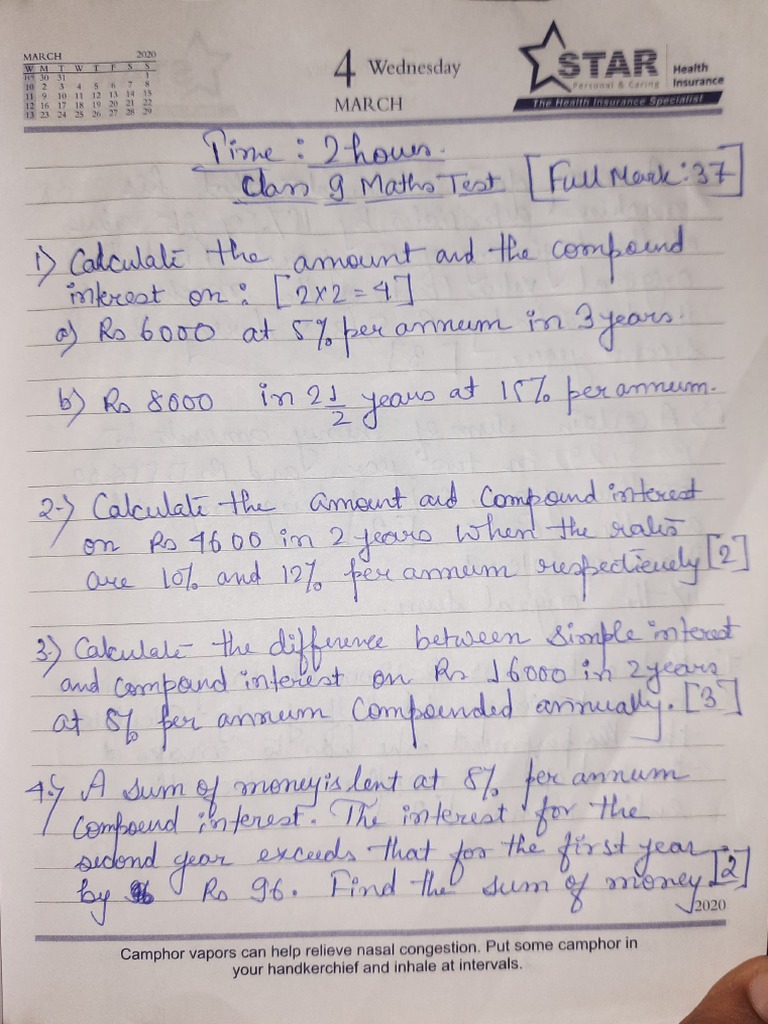 MARCH 2020
W M T W T F S S
30 31 1
10 2 3 4 5 6 7 8
11 9 10 11 12 13 14 15
12 16 17 18 19 20 21 22
13 23 24 25 26 27 28 29
4 Wednesday
MARCH
STAR Health Insurance
Personal & Caring
The Health Insurance Specialist
Time : 2 hours.
Class 9 Maths Test [Full Mark: 37]
1) Calculate the amount and the compound
interest on : [2x2=4]
a) Rs 6000 at 5% per annum in 3 years.
b) Rs 8000 in 2 1/2 years at 15% per annum.
2.) Calculate the amount and compound interest
on Rs 4600 in 2 years when the rates
are 10% and 12% per annum respectively [2]
3.) Calculate the difference between simple interest
and compound interest on Rs 16000 in 2 years
at 8% per annum compounded annually. [3]
4.) A sum of money is lent at 8% per annum
compound interest. The interest for the
second year exceeds that for the first year
by Rs 96. Find the sum of money [2]
2020
Camphor vapors can help relieve nasal congestion. Put some camphor in
your handkerchief and inhale at intervals.